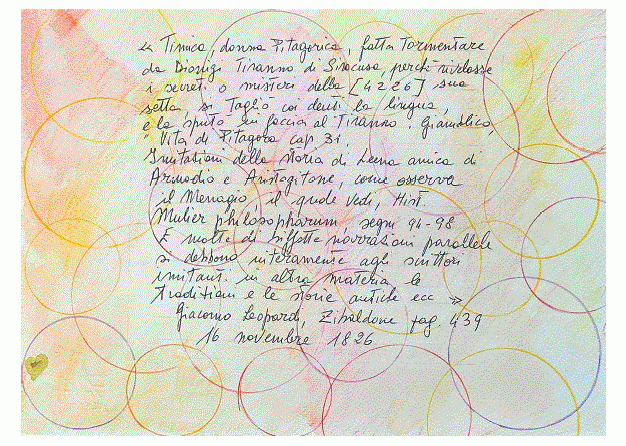 « Timica, donna Pitagorica, fatta tormentare
da Dionigi Tiranno di Siracusa, perché rivelasse
i secreti o misteri della [4226] sua
setta, si tagliò coi denti la lingua,
e la sputò in faccia al Tiranno. Giamblico,
" Vita di Pitagora cap. 31.
Imitazioni della storia di Leena amica di
Armodio e Aristogitone, come osserva
il Menagio, il quale vedi, Hist.
Mulier philosopharum, segm 94-98
E molte di siffatte narrazioni parallele
si debbono interamente agli scrittori
imitanti in altra materia le
tradizioni e le storie antiche ecc »
Giacomo Leopardi, Zibaldone pag. 439
16 novembre 1826